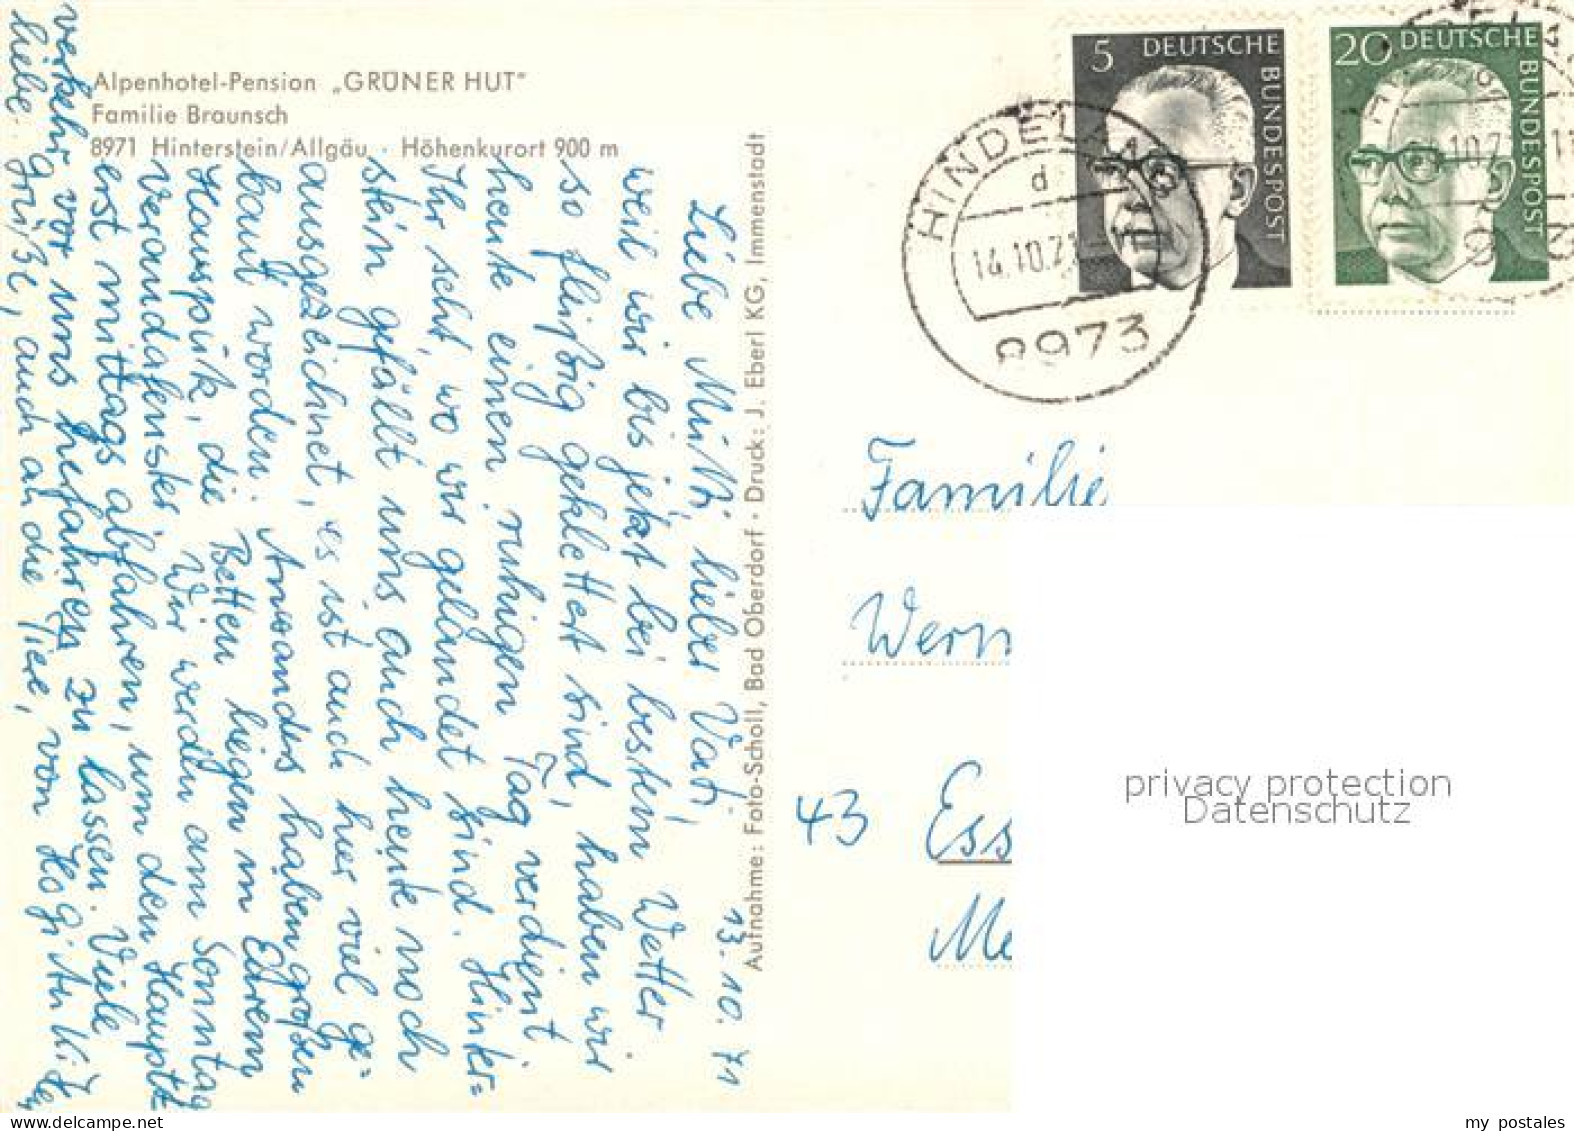 Alpenhotel-Pension „GRÜNER HUT"
Familie Braunsch
8971 Hinterstein/Allgäu · Höhenkurort 900 m
13.10.71
Liebe Mutti, lieber Vati,
weil wir bis jetzt bei bestem Wetter
so fleißig geklettert sind, haben wir
heute einen ruhigen Tag verdient
Ihr seht, wo wir gelandet sind. Hinter=
stein gefällt uns auch heute noch
ausgezeichnet, es ist auch hier viel ge=
baut worden. Amanders haben großen
Hausputz, die Betten liegen in
Verandafenster. Wir werden am Sonntag
erst mittags abfahren, um den Haupt
verkehr vor uns herfahren zu lassen. Viele
liebe Grüße, auch an die Tiere, von
Aufnahme: Foto-Scholl, Bad Oberdorf · Druck: J. Eberl KG, Immenstadt
5 DEUTSCHE BUNDESPOST
20 DEUTSCHE BUNDESPOST
HINDELANG
d
14.10.71
8973
Familie
Wern
43 Ess
Me
privacy protection
Datenschutz
my postales